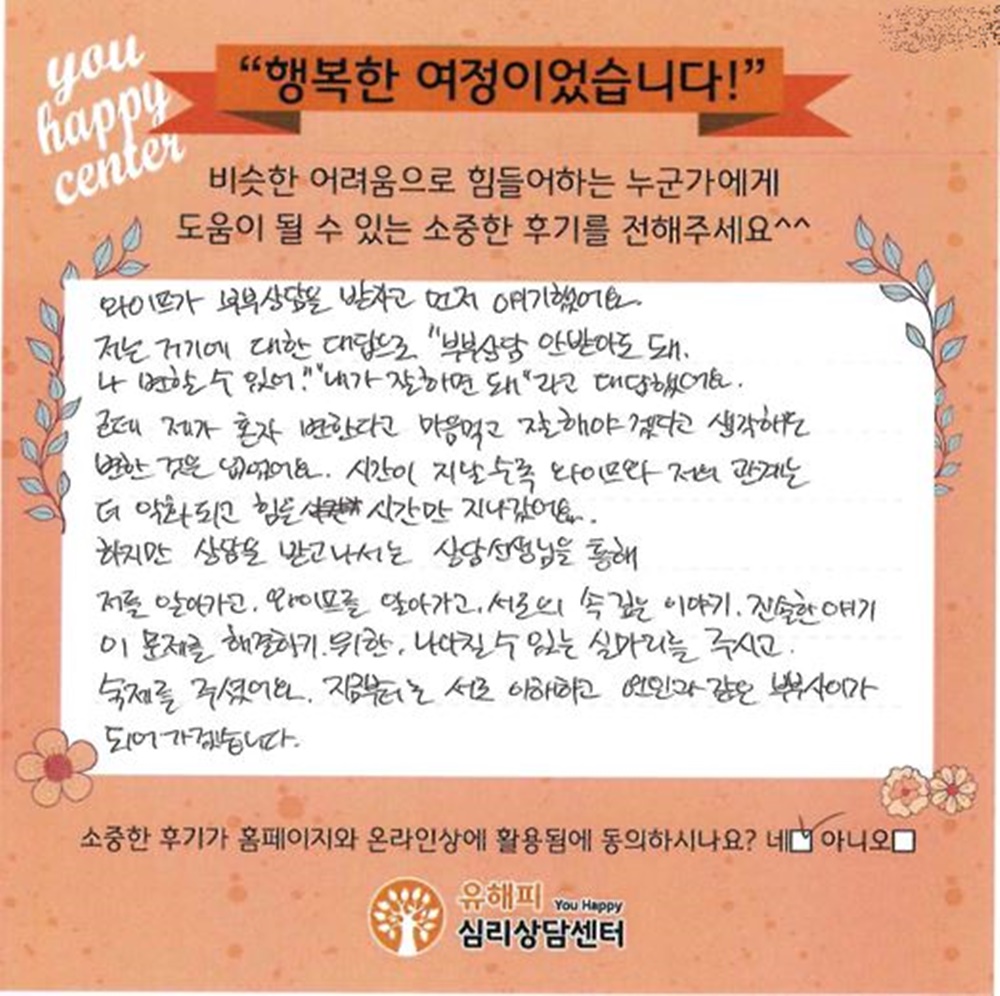 you
happy
center
“행복한 여정이었습니다!”
비슷한 어려움으로 힘들어하는 누군가에게
도움이 될 수 있는 소중한 후기를 전해주세요^^
와이프가 부부상담을 받자고 먼저 얘기했어요.
저는 거기에 대한 대답으로 "부부상담 안받아도 돼.
나 변할 수 있어." "내가 잘하면 돼"라고 대답했어요.
근데 제가 혼자 변한다고 마음먹고 잘해야 겠다고 생각해도
변한 것은 없었어요. 시간이 지날수록 와이프와 저의 관계는
더 악화되고 힘든 시간만 지나갔어요.
하지만 상담을 받고나서는 상담선생님을 통해
저를 알아가고, 와이프를 알아가고, 서로의 속 깊은 이야기, 진솔한 얘기
이 문제를 해결하기 위한, 나아질 수 있는 실마리를 주시고
숙제를 주셨어요. 지금부터는 서로 이해하고 연인과 같은 부부사이가
되어 가겠습니다.
소중한 후기가 홈페이지와 온라인상에 활용됨에 동의하시나요? 네 아니오
유해피 You Happy
심리상담센터